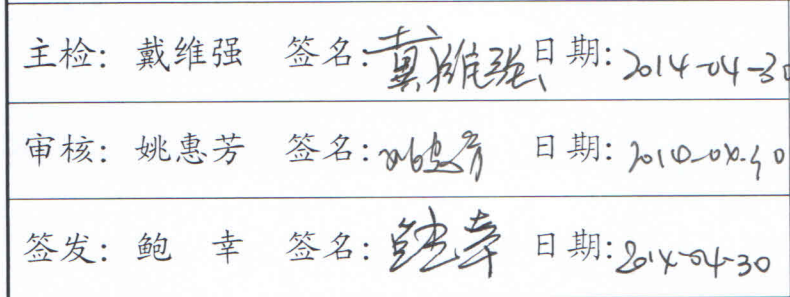 主检: 戴维强 签名: 戴维强 日期: 2014-04-30
审核: 姚惠芳 签名: 姚惠芳 日期:
签发: 鲍 幸 签名: 鲍幸 日期: 2014-04-30